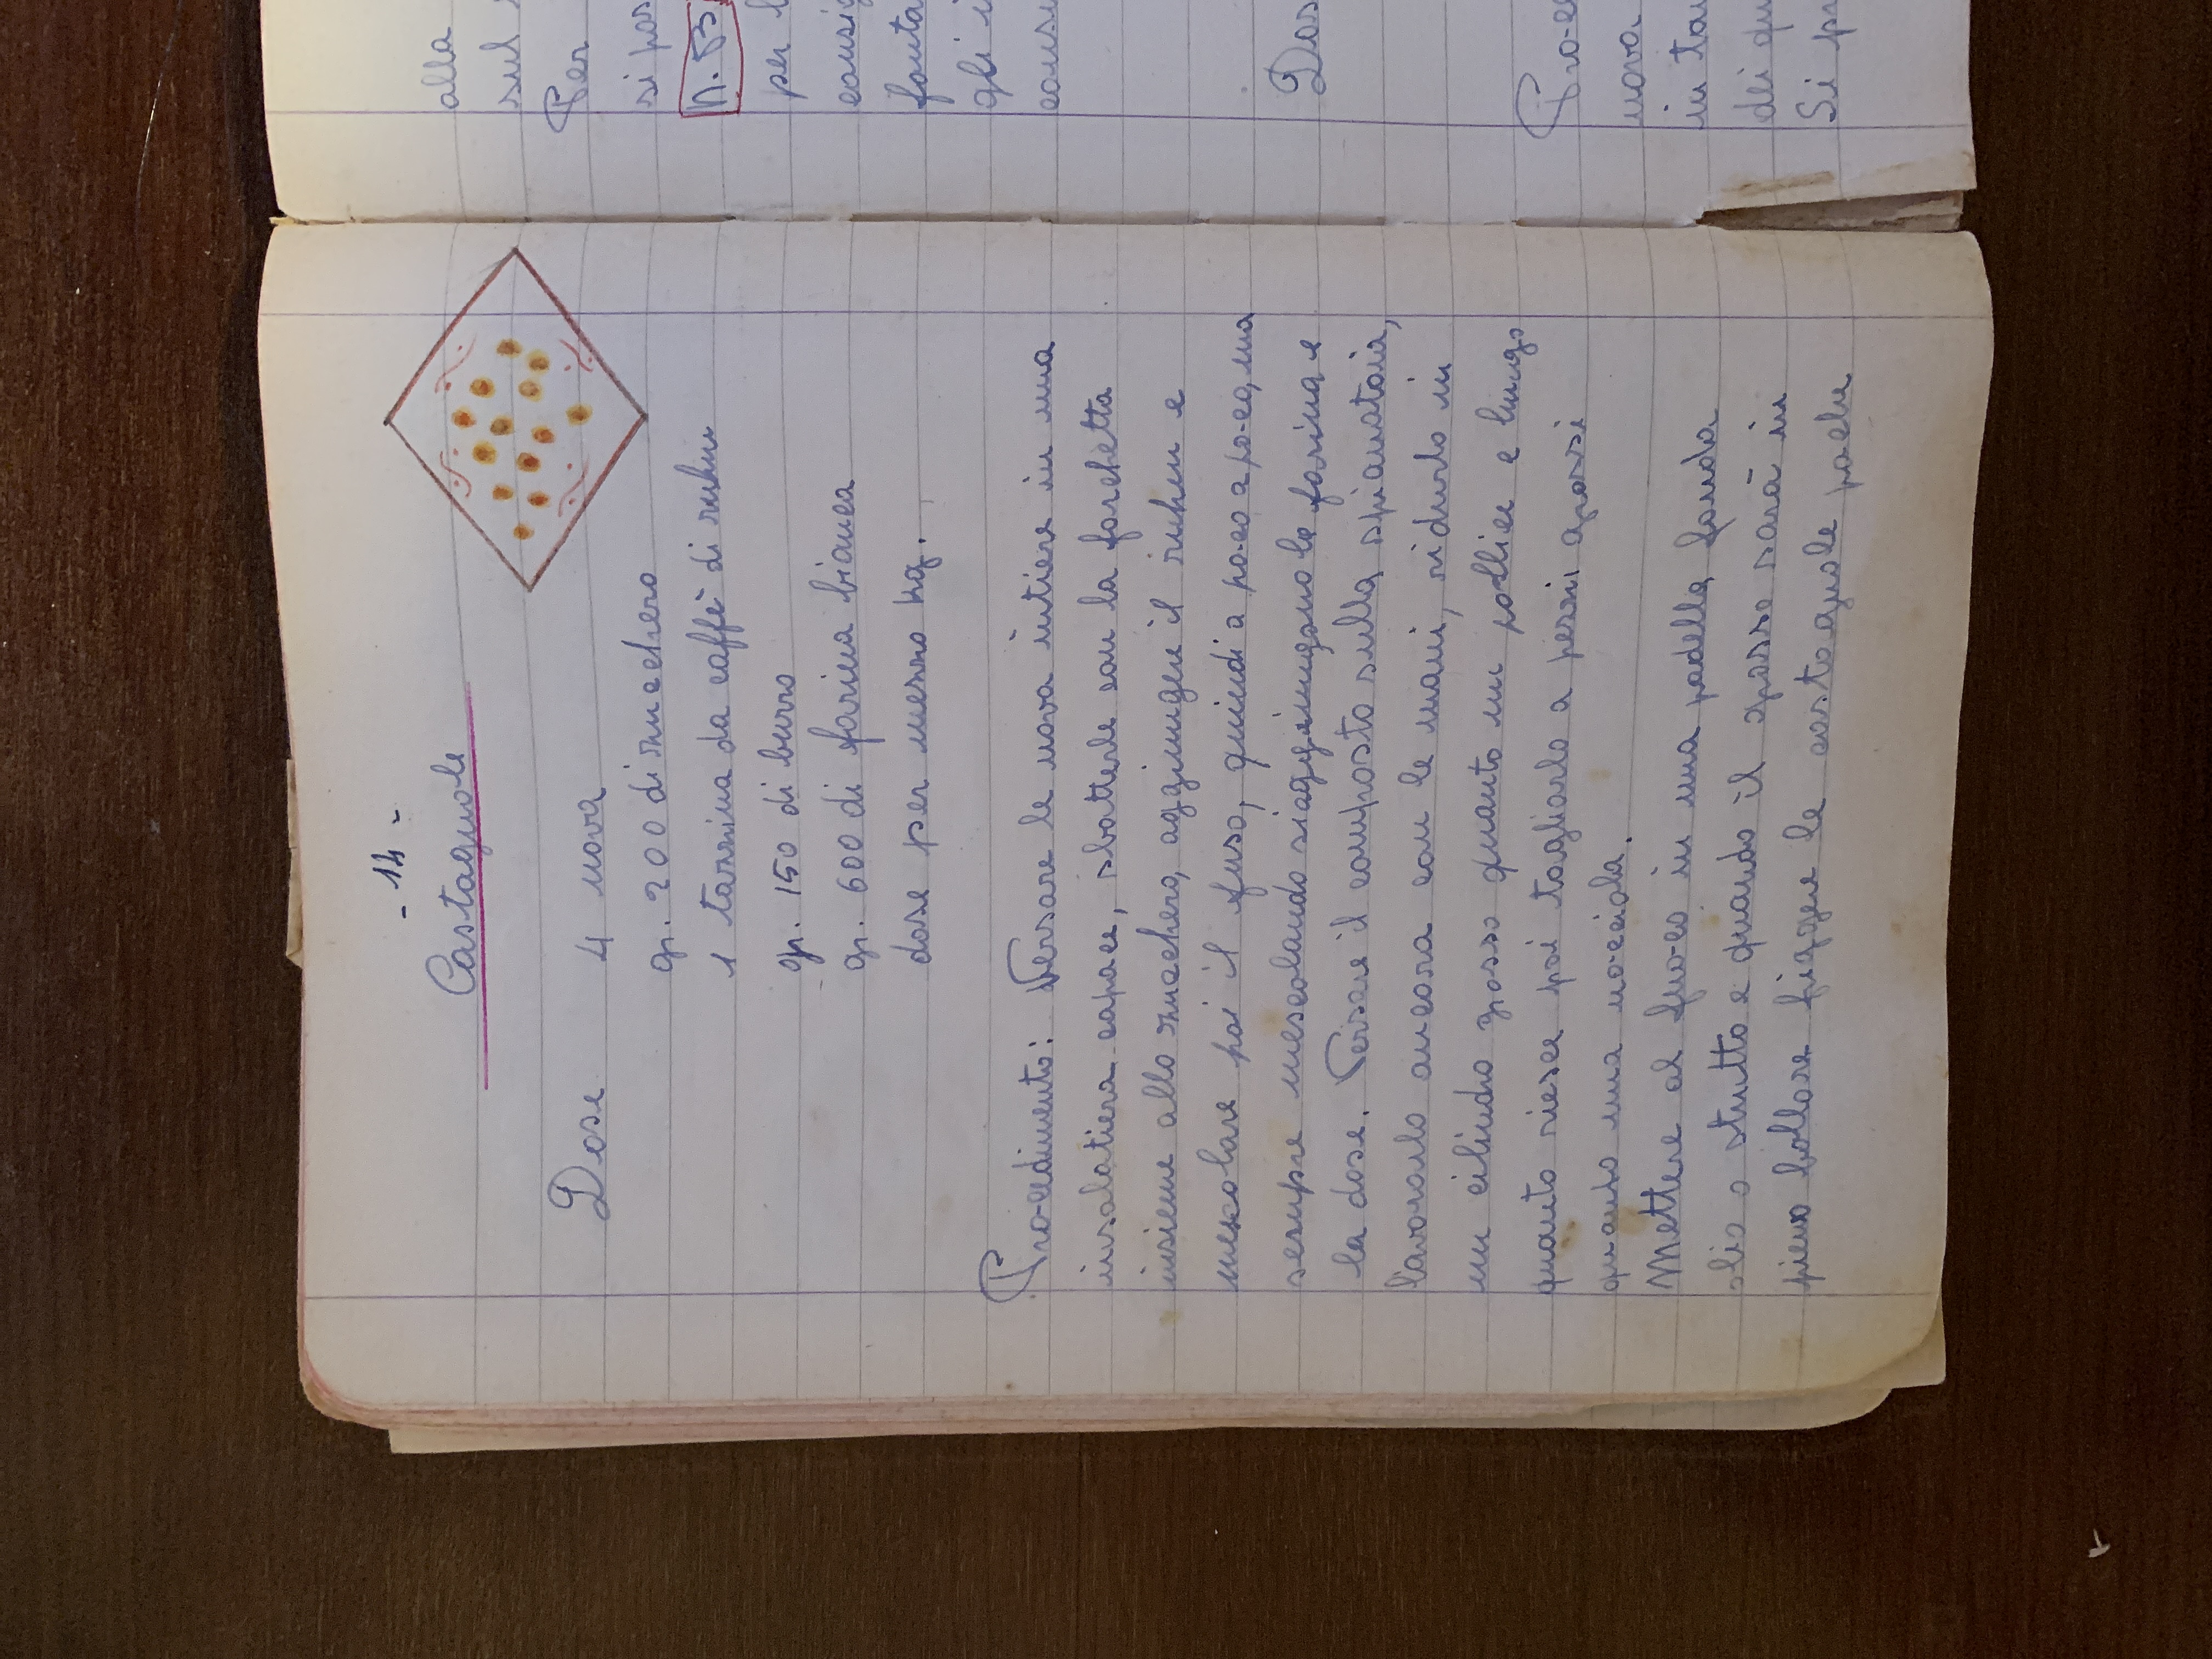 - 14 -
Castagnole
Dose 4 uova
gr. 200 di zucchero
1 tazzina da caffè di ruhm
gr. 150 di burro
gr. 600 di farina bianca
dose per mezzo kg.
Procedimento: Versare le uova intiere in una
insalatiera capace, sbatterle con la forchetta
insieme allo zucchero, aggiungere il ruhm e
mescolare poi il fuso, quindi a poco a poco, ma
sempre mescolando si aggiungono la farina e
la dose. Versare il composto sulla spianatoia,
lavorarlo ancora con le mani, ridurlo in
un cilindro grosso quanto un pollice e lungo
quanto riesce poi tagliarlo a pezzi grossi
quanto una nocciola.
Mettere al fuoco in una padella fonda
olio o strutto e quando il grosso sarà in
pieno bollore friggere le castagnole poche
alla
sul
Per
si pos
N. 53
per l
consig
fonta
gli i
consu
Dos
Proce
uova
in ta
dei qu
Si pr